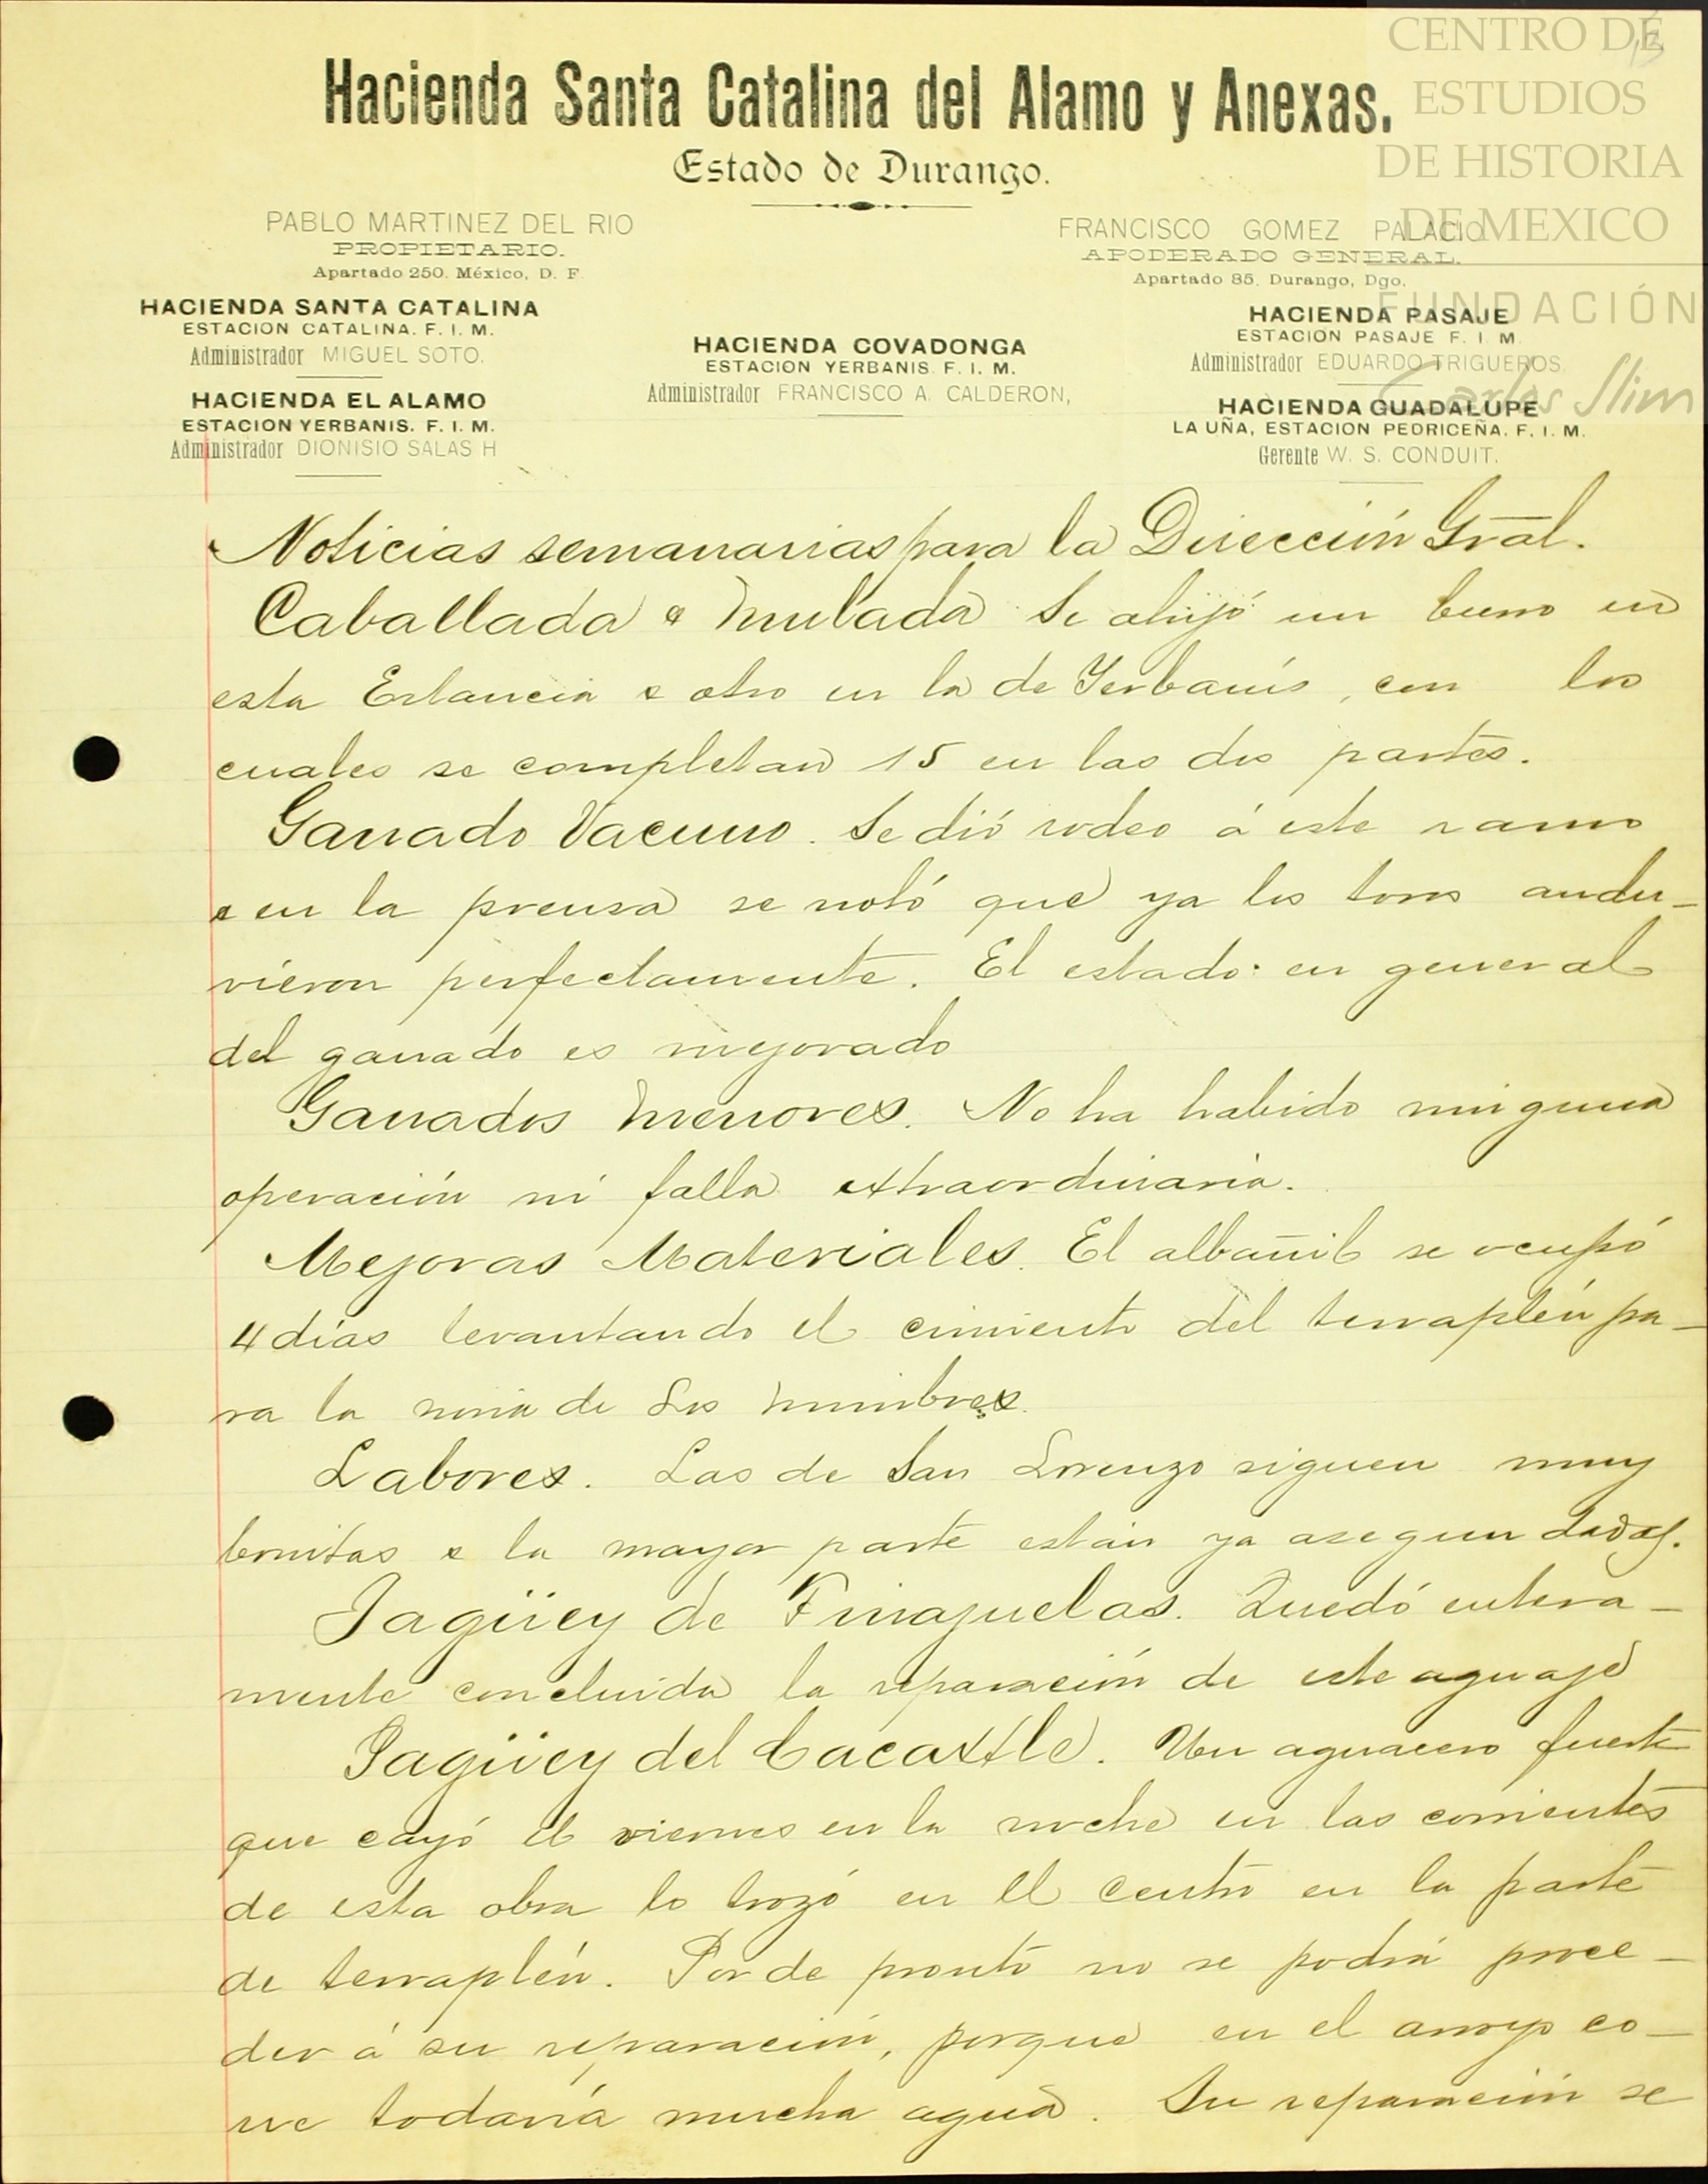 CENTRO DE
ESTUDIOS
DE HISTORIA
DE MEXICO
FUNDACIÓN
Carlos Slim
13
Hacienda Santa Catalina del Alamo y Anexas.
Estado de Durango.
PABLO MARTINEZ DEL RIO
PROPIETARIO.
Apartado 250. México, D. F.
HACIENDA SANTA CATALINA
ESTACION CATALINA. F. I. M.
Administrador MIGUEL SOTO.
HACIENDA EL ALAMO
ESTACION YERBANIS. F. I. M.
Administrador DIONISIO SALAS H
HACIENDA COVADONGA
ESTACION YERBANIS. F. I. M.
Administrador FRANCISCO A. CALDERON,
FRANCISCO GOMEZ PALACIO
APODERADO GENERAL.
Apartado 85. Durango, Dgo.
HACIENDA PASAJE
ESTACION PASAJE F. I. M.
Administrador EDUARDO TRIGUEROS.
HACIENDA GUADALUPE
LA UÑA, ESTACION PEDRICEÑA. F. I. M.
Gerente W. S. CONDUIT.
Noticias semanarias para la Dirección Gral.
Caballada e Mulada Se ahijó un burro en
esta Estancia e otro en la de Yerbanís, con los
cuales se completan 15 en las dos partes.
Ganado Vacuno. Se dió rodeo á este ramo
e en la prensa se notó que ya los toros andu-
vieron perfectamente. El estado en general
del ganado es mejorado
Ganados Menores. No ha habido ninguna
operación ni falla extraordinaria.
Mejoras Materiales. El albañil se ocupó
4 días levantando el cimiento del terraplén pa-
ra la noria de Los Mimbres.
Labores. Las de San Lorenzo siguen muy
bonitas e la mayor parte están ya asegundadas.
Jagüey de Tinajuelas. Quedó entera-
mente concluida la reparación de este aguaje
Jagüey del Cacaxtle. Un aguacero fuerte
que cayó el viernes en la noche en las corrientes
de esta obra lo trozó en el centro en la parte
de terraplén. Por de pronto no se podrá proce-
der á su reparación, porque en el arroyo co-
rre todavía mucha agua. Su reparación se